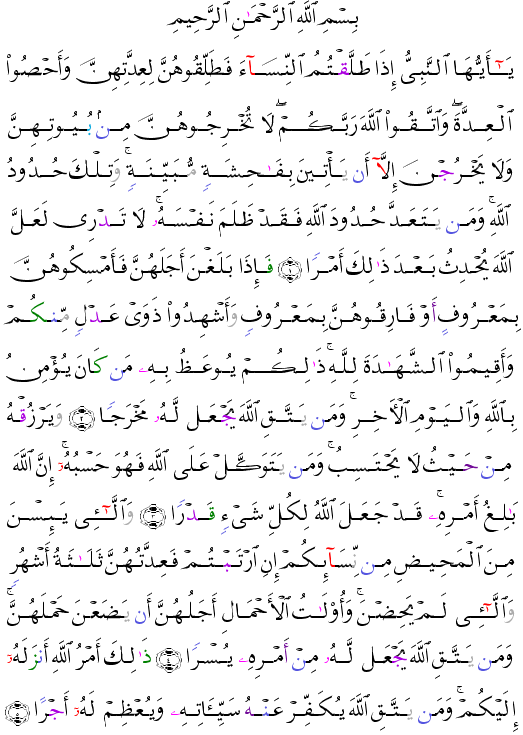 بِسْمِ ٱللَّهِ ٱلرَّحْمَـٰنِ ٱلرَّحِيمِ
يَـٰٓأَيُّهَا ٱلنَّبِىُّ إِذَا طَلَّقْتُمُ ٱلنِّسَآءَ فَطَلِّقُوهُنَّ لِعِدَّتِهِنَّ وَأَحْصُوا۟
ٱلْعِدَّةَ ۖ وَٱتَّقُوا۟ ٱللَّهَ رَبَّكُمْ ۖ لَا تُخْرِجُوهُنَّ مِنۢ بُيُوتِهِنَّ
وَلَا يَخْرُجْنَ إِلَّآ أَن يَأْتِينَ بِفَـٰحِشَةٍ مُّبَيِّنَةٍ ۚ وَتِلْكَ حُدُودُ
ٱللَّهِ ۚ وَمَن يَتَعَدَّ حُدُودَ ٱللَّهِ فَقَدْ ظَلَمَ نَفْسَهُۥ ۚ لَا تَدْرِى لَعَلَّ
ٱللَّهَ يُحْدِثُ بَعْدَ ذَٰلِكَ أَمْرًا ۝١ فَإِذَا بَلَغْنَ أَجَلَهُنَّ فَأَمْسِكُوهُنَّ
بِمَعْرُوفٍ أَوْ فَارِقُوهُنَّ بِمَعْرُوفٍ وَأَشْهِدُوا۟ ذَوَىْ عَدْلٍ مِّنكُمْ
وَأَقِيمُوا۟ ٱلشَّهَـٰدَةَ لِلَّهِ ۚ ذَٰلِكُمْ يُوعَظُ بِهِۦ مَن كَانَ يُؤْمِنُ
بِٱللَّهِ وَٱلْيَوْمِ ٱلْـَٔاخِرِ ۚ وَمَن يَتَّقِ ٱللَّهَ يَجْعَل لَّهُۥ مَخْرَجًا ۝٢ وَيَرْزُقْهُ
مِنْ حَيْثُ لَا يَحْتَسِبُ ۚ وَمَن يَتَوَكَّلْ عَلَى ٱللَّهِ فَهُوَ حَسْبُهُۥٓ ۚ إِنَّ ٱللَّهَ
بَـٰلِغُ أَمْرِهِۦ ۚ قَدْ جَعَلَ ٱللَّهُ لِكُلِّ شَىْءٍ قَدْرًا ۝٣ وَٱلَّـٰٓـِٔى يَئِسْنَ
مِنَ ٱلْمَحِيضِ مِن نِّسَآئِكُمْ إِنِ ٱرْتَبْتُمْ فَعِدَّتُهُنَّ ثَلَـٰثَةُ أَشْهُرٍ
وَٱلَّـٰٓـِٔى لَمْ يَحِضْنَ ۚ وَأُو۟لَـٰتُ ٱلْأَحْمَالِ أَجَلُهُنَّ أَن يَضَعْنَ حَمْلَهُنَّ ۚ
وَمَن يَتَّقِ ٱللَّهَ يَجْعَل لَّهُۥ مِنْ أَمْرِهِۦ يُسْرًا ۝٤ ذَٰلِكَ أَمْرُ ٱللَّهِ أَنزَلَهُۥٓ
إِلَيْكُمْ ۚ وَمَن يَتَّقِ ٱللَّهَ يُكَفِّرْ عَنْهُ سَيِّـَٔاتِهِۦ وَيُعْظِمْ لَهُۥٓ أَجْرًا ۝٥